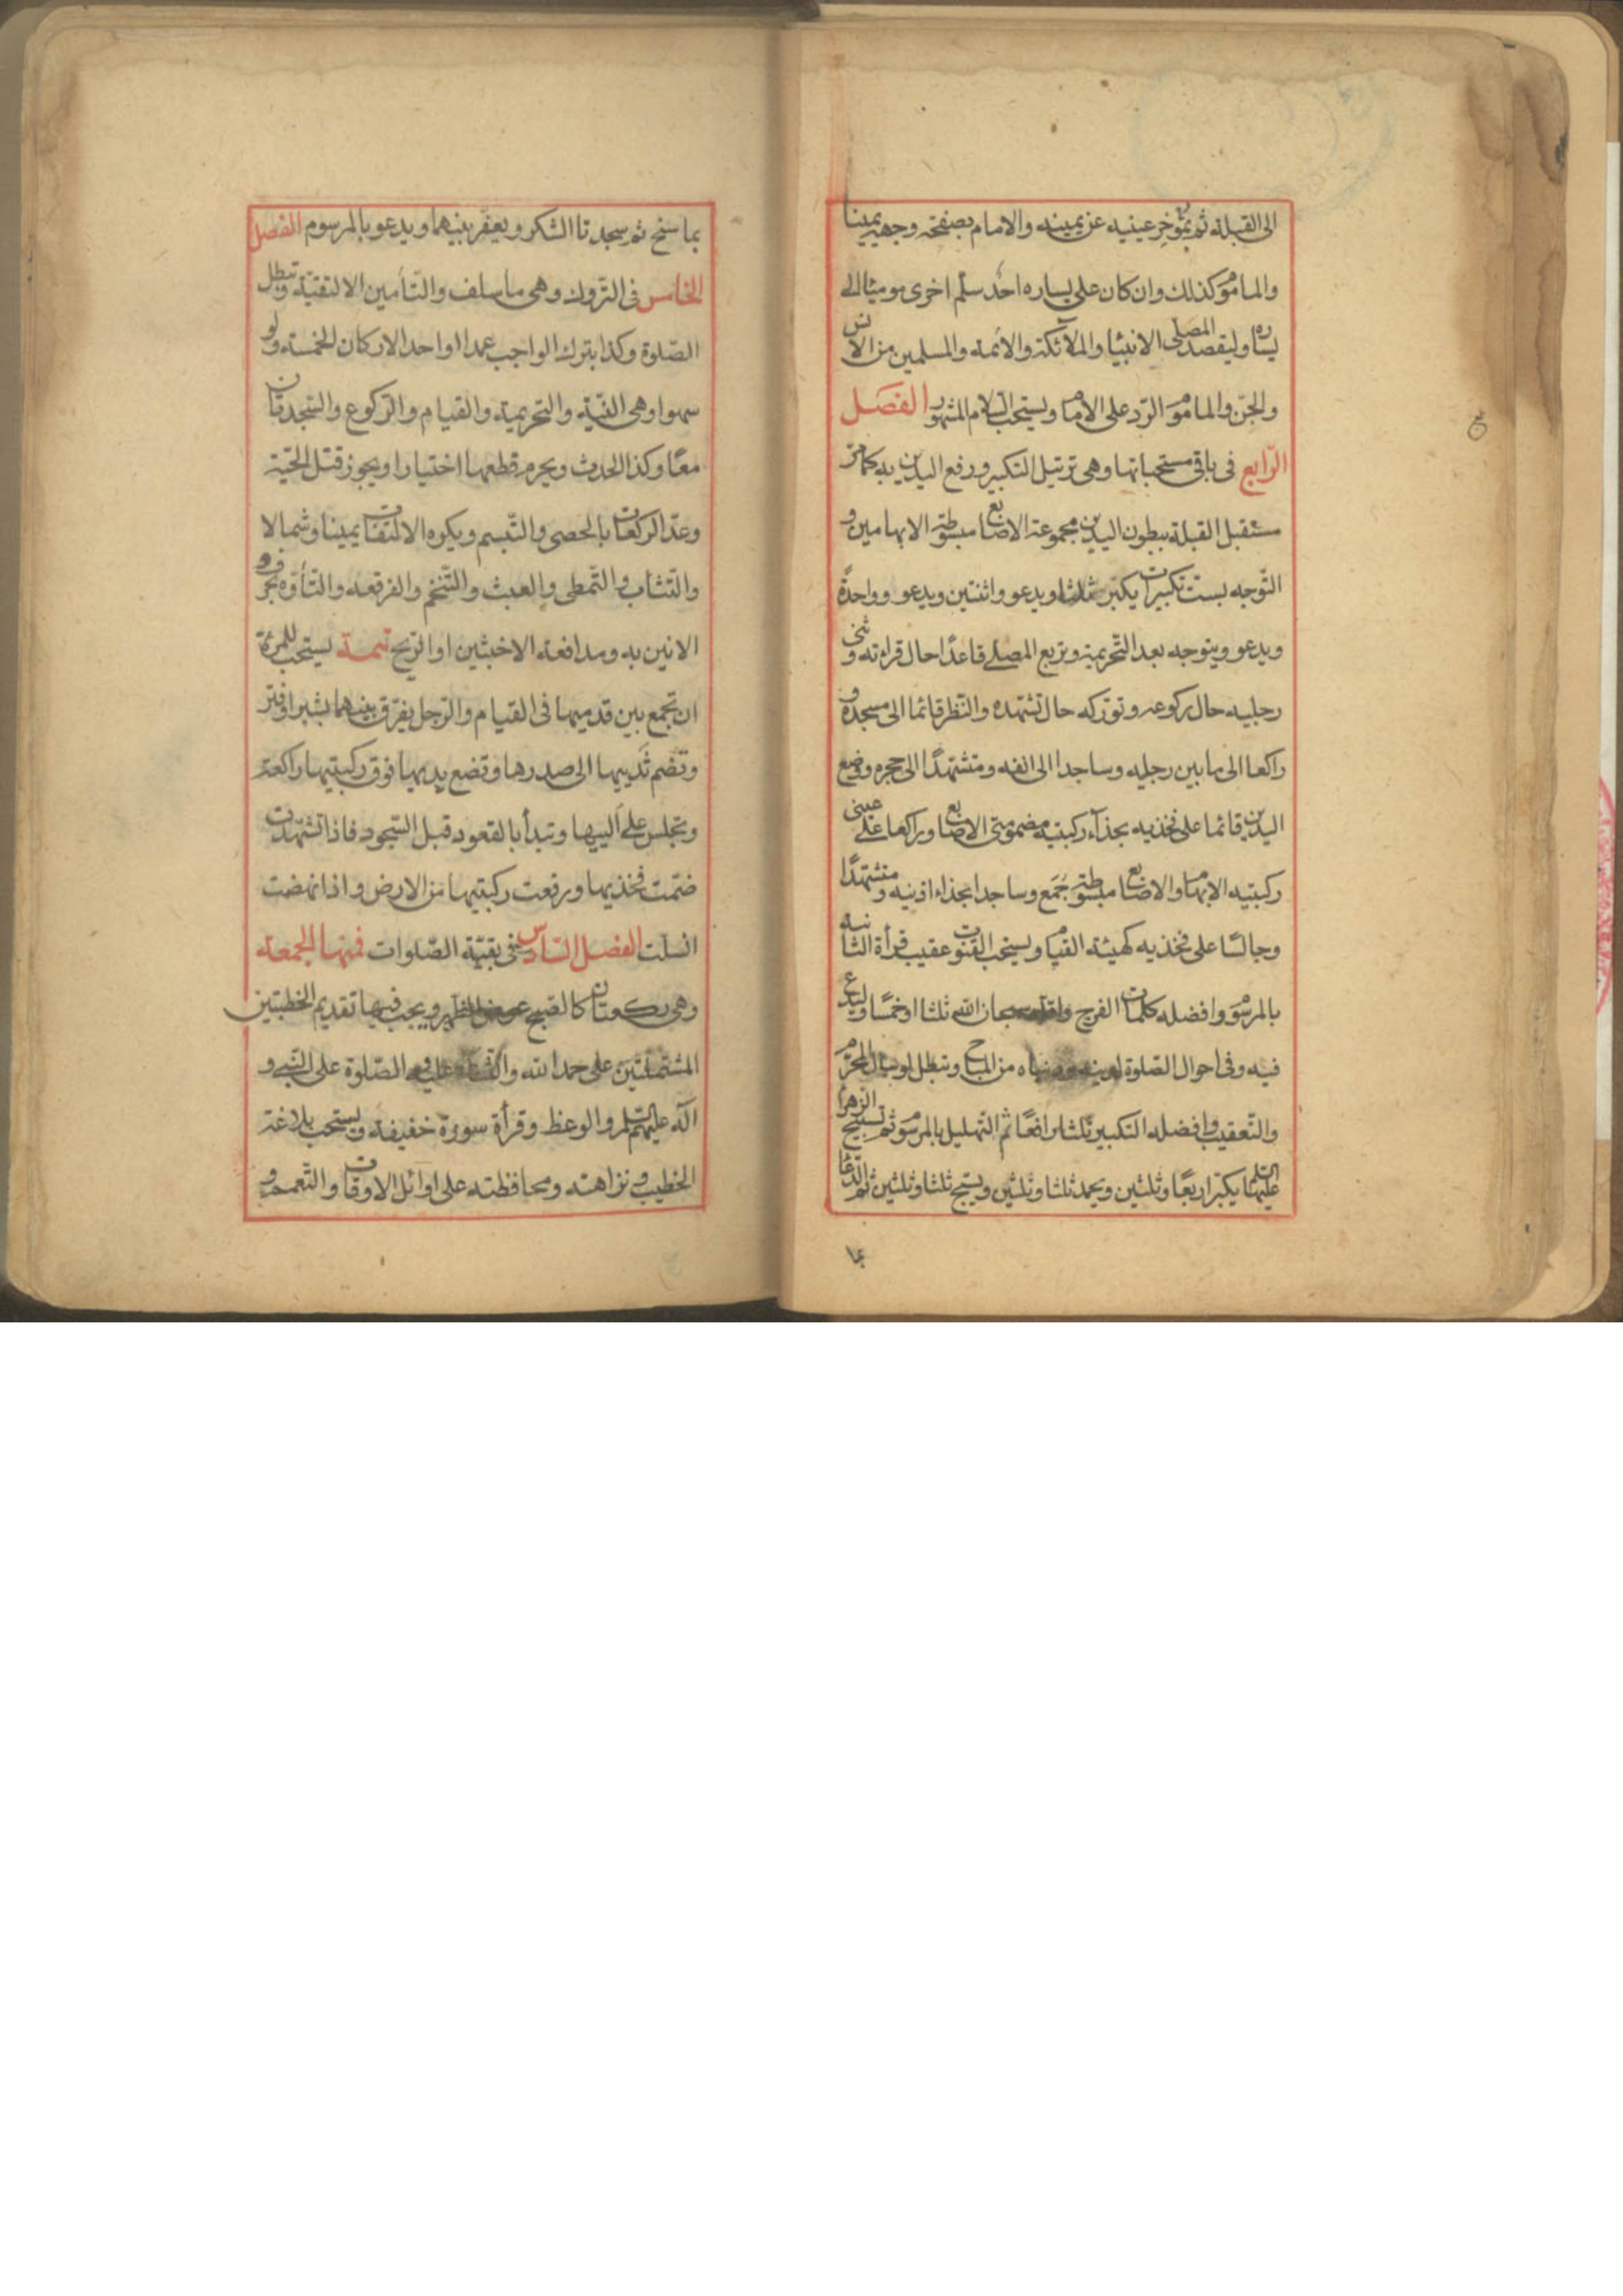 الى القبلة ثم بمؤخر عينيه عن يمينه والامام بصفحة وجهه يمينا
والماموم كذلك وان كان على يساره احد سلم اخرى موميا الى
يساره وليقصد المصلى الانبيا والملائكة والائمة والمسلمين من الانس
والجن والماموم الرد على الامام ويستحب السلام المشهور الفصل
الرابع فى باقى مستحباتها وهى ترتيل التكبير ورفع اليدين به كما مر
مستقبل القبلة ببطون اليدين مجموعة الاصابع مبسوطة الابهامين و
التوجه بست تكبيرات يكبر ثلثا ويدعو واثنتين ويدعو وواحدة
ويدعو ويتوجه بعد التحريمة وتربع المصلى قاعدا حال قراءته وثنى
رجليه حال ركوعه وتوركه حال تشهده والنظر قائما الى مسجده و
راكعا الى ما بين رجليه وساجدا الى انفه ومتشهدا الى حجره ووضع
اليدين قائما على فخذيه بحذاء ركبتيه مضمومتى الاصابع وراكعا على عينى
ركبتيه الابهام والاصابع مبسوطة جمع وساجدا بحذاء اذنيه ومتشهدا
وجالسا على فخذيه كهيئة القيام ويستحب القنوت عقيب قرأة الثانيه
بالمرسوم وافضله كلمات الفرج واقله سبحان الله ثلثا او خمسا وليدع
فيه وفى احوال الصلوة لدينه ودنياه من المباح وتبطل لو سال المحرم
والتعقيب وافضله التكبير ثلثا رافعا ثم التهليل بالمرسوم ثم تسبيح الزهرا
عليها السلم يكبر اربعا وثلثين ويحمد ثلثا وثلثين ويسبح ثلثا وثلثين ثم الدعا
بما
بما سنح ثم سجدتا الشكر ويعفر بينهما ويدعو بالمرسوم الفصل
الخامس فى التروك وهى ما سلف والتأمين الا لتقية وتبطل
الصلوة وكذا بترك الواجب عمدا او احد الاركان الخمسة ولو
سهوا وهى النية والتحريمة والقيام والركوع والسجدتان
معا وكذا الحدث ويحرم قطعها اختيارا ويجوز قتل الحية
وعد الركعات بالحصى والتبسم ويكره الالتفات يمينا وشمالا
والتثاب والتمطى والعبث والتنخم والفرقعة والتأوه بحرف و
الانين به ومدافعة الاخبثين او الريح تتمة يستحب للمرئة
ان تجمع بين قدميها فى القيام والرجل يفرق بينهما بشبر او فتر
وتضم ثدييها الى صدرها وتضع يديها فوق ركبتيها راكعة
وتجلس على اليييها وتبدأ بالقعود قبل السجود فاذا تشهدت
ضمت فخذيها ورفعت ركبتيها من الارض واذا نهضت
انسلت الفصل السادس فى بقية الصلوات فمنها الجمعة
وهى ركعتان كالصبح عوض الظهر ويجب فيها تقديم الخطبتين
المشتملتين على حمد الله والثناء عليه والصلوة على النبى و
آله عليهم السلم والوعظ وقرأة سورة خفيفة ويستحب بلاغة
الخطيب ونزاهته ومحافظته على اوائل الاوقات والتعمم و